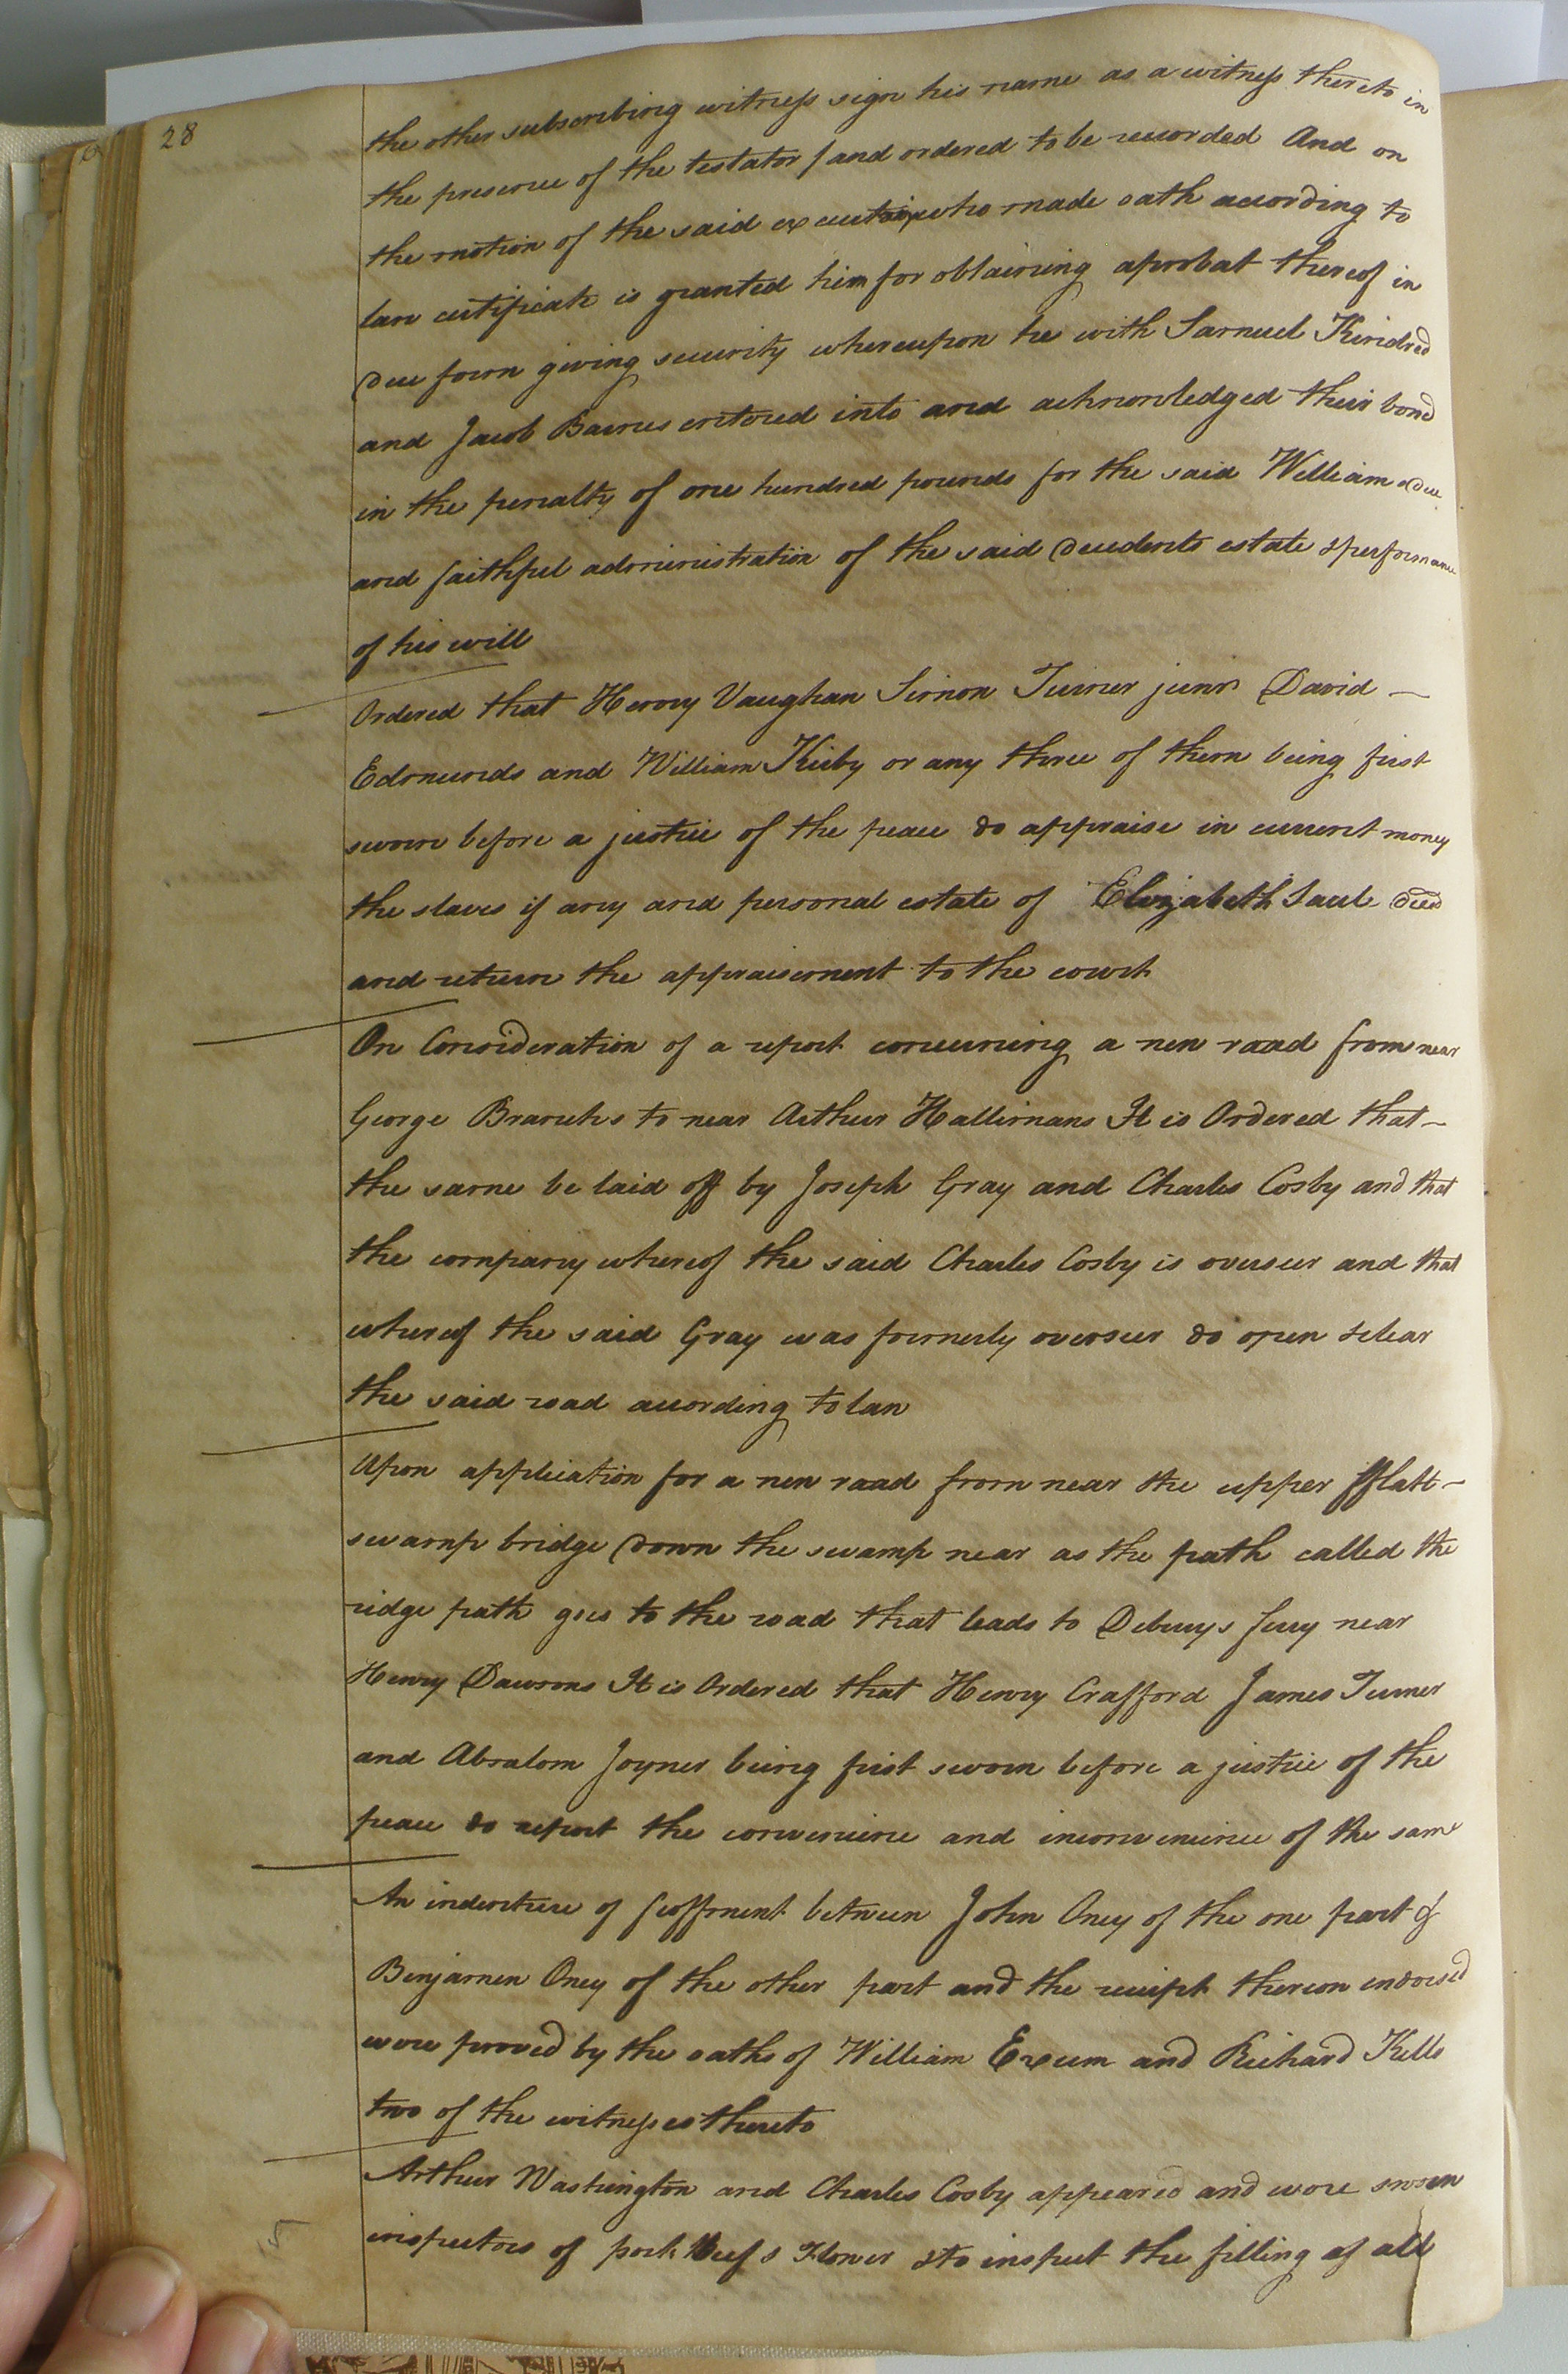 28
the other subscribing witness sign his name as a witness thereto in
the presence of the testator / and ordered to be recorded And on
the motion of the said executor who made oath according to
law certificate is granted him for obtaining aprobat thereof in
due form giving security whereupon he with Samuel Kindred
and Jacob Barnes entered into and acknowledged their bond
in the penalty of one hundred pounds for the said William due
and faithful administration of the said decedents estate & performance
of his will
Ordered that Henry Vaughan Simon Turner junr David
Edmunds and William Kirby or any three of them being first
sworn before a justice of the peace do appraise in current money
the slaves if any and personal estate of Elizabeth Saul decd
and return the appraisement to the court
On Consideration of a report concerning a new road from near
George Branchs to near Arthur Hallimans It is Ordered that
the same be laid off by Joseph Gray and Charles Cosby and that
the company whereof the said Charles Cosby is overseer and that
whereof the said Gray was formerly overseer do open & clear
the said road acording to law
Upon application for a new road from near the upper fflatt
swamp bridge down the swamp near as the path called the
ridge path goes to the road that leads to Deburys ferry near
Henry Dawsons It is Ordered that Henry Crafford James Turner
and Absalom Joyner being first sworn before a justice of the
peace do report the convenience and inconvenience of the same
An indenture of feoffment between John Oney of the one part &
Benjamen Oney of the other part and the receipt thereon endorsed
were proved by the oaths of William Exum and Richard Kello
two of the witnesses thereto
Arthur Washington and Charles Cosby appeared and were sworn
inspectors of pork Beef & Flower & to inspect the filling of all